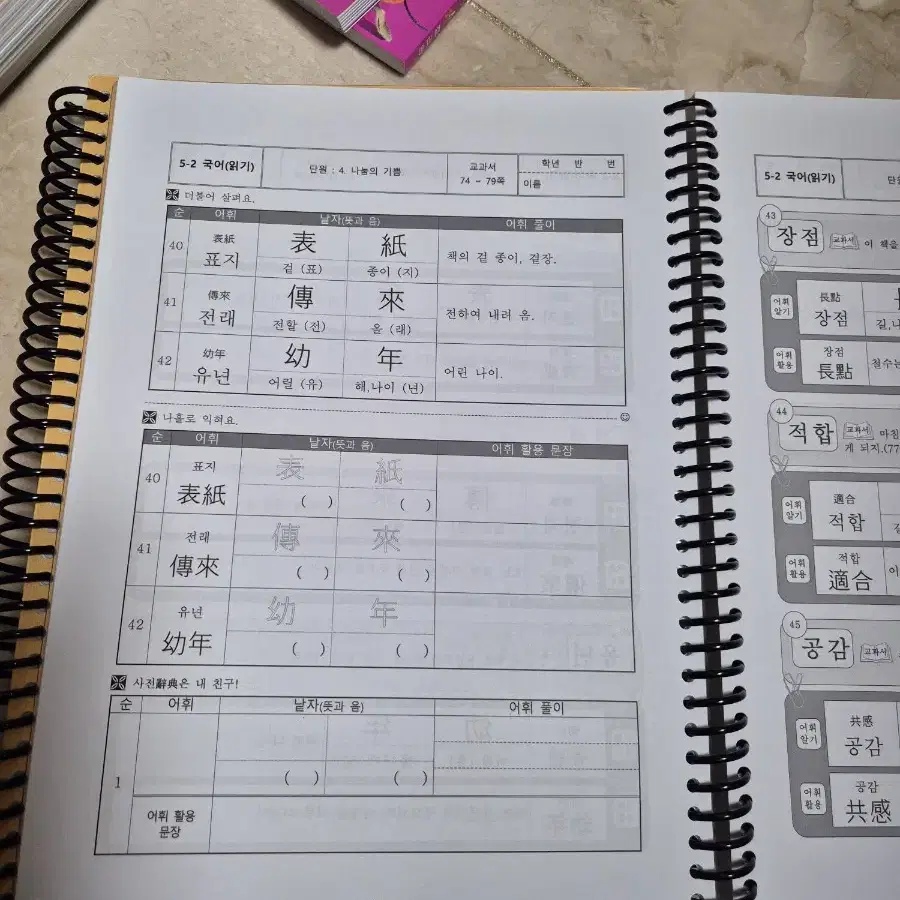 5-2 국어(읽기) 단원 : 4. 나눔의 기쁨 교과서 74 ~ 79쪽 학년 반 번 이름
더불어 살펴요.
순 어휘 낱자(뜻과 음) 어휘 풀이
40 表紙 표지 表 紙 책의 겉 종이, 겉장.
겉 (표) 종이 (지)
41 傳來 전래 傳 來 전하여 내려 옴.
전할 (전) 올 (래)
42 幼年 유년 幼 年 어린 나이.
어릴 (유) 해,나이 (년)
나홀로 익혀요.
순 어휘 낱자(뜻과 음) 어휘 활용 문장
40 표지 表紙 表 紙
( ) ( )
41 전래 傳來 傳 來
( ) ( )
42 유년 幼年 幼 年
( ) ( )
사전辭典은 내 친구!
순 어휘 낱자(뜻과 음) 어휘 풀이
1 ( ) ( )
어휘 활용 문장
5-2 국어(읽기)
43
장점 교과서 이 책을
어휘 알기 長點 장점
길,
어휘 활용 장점 長點 철수는
44
적합 교과서 마침
게 되지.(77
어휘 알기 適合 적합
어휘 활용 적합 適合
45
공감 교과서
어휘 알기 共感 공감
어휘 활용 공감 共感